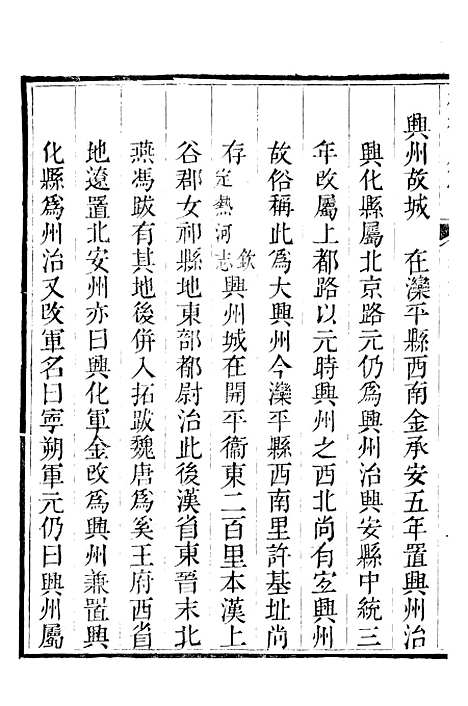 興州故城　在灤平縣西南金承安五年置興州治
興化縣屬北京路元仍爲興州治興安縣中統三
年改屬上都路以元時興州之西北尚有宜興州
故俗稱此爲大興州今灤平縣西南里許基址尚
存欽定熱河志興州城在開平衞東二百里本漢上
谷郡女祁縣地東部都尉治此後漢省東晉末北
燕馮跋有其地後併入拓跋魏唐爲奚王府西省
地遼置北安州亦曰興化軍金改爲興州兼置興
化縣爲州治又改軍名曰寧朔軍元仍曰興州屬